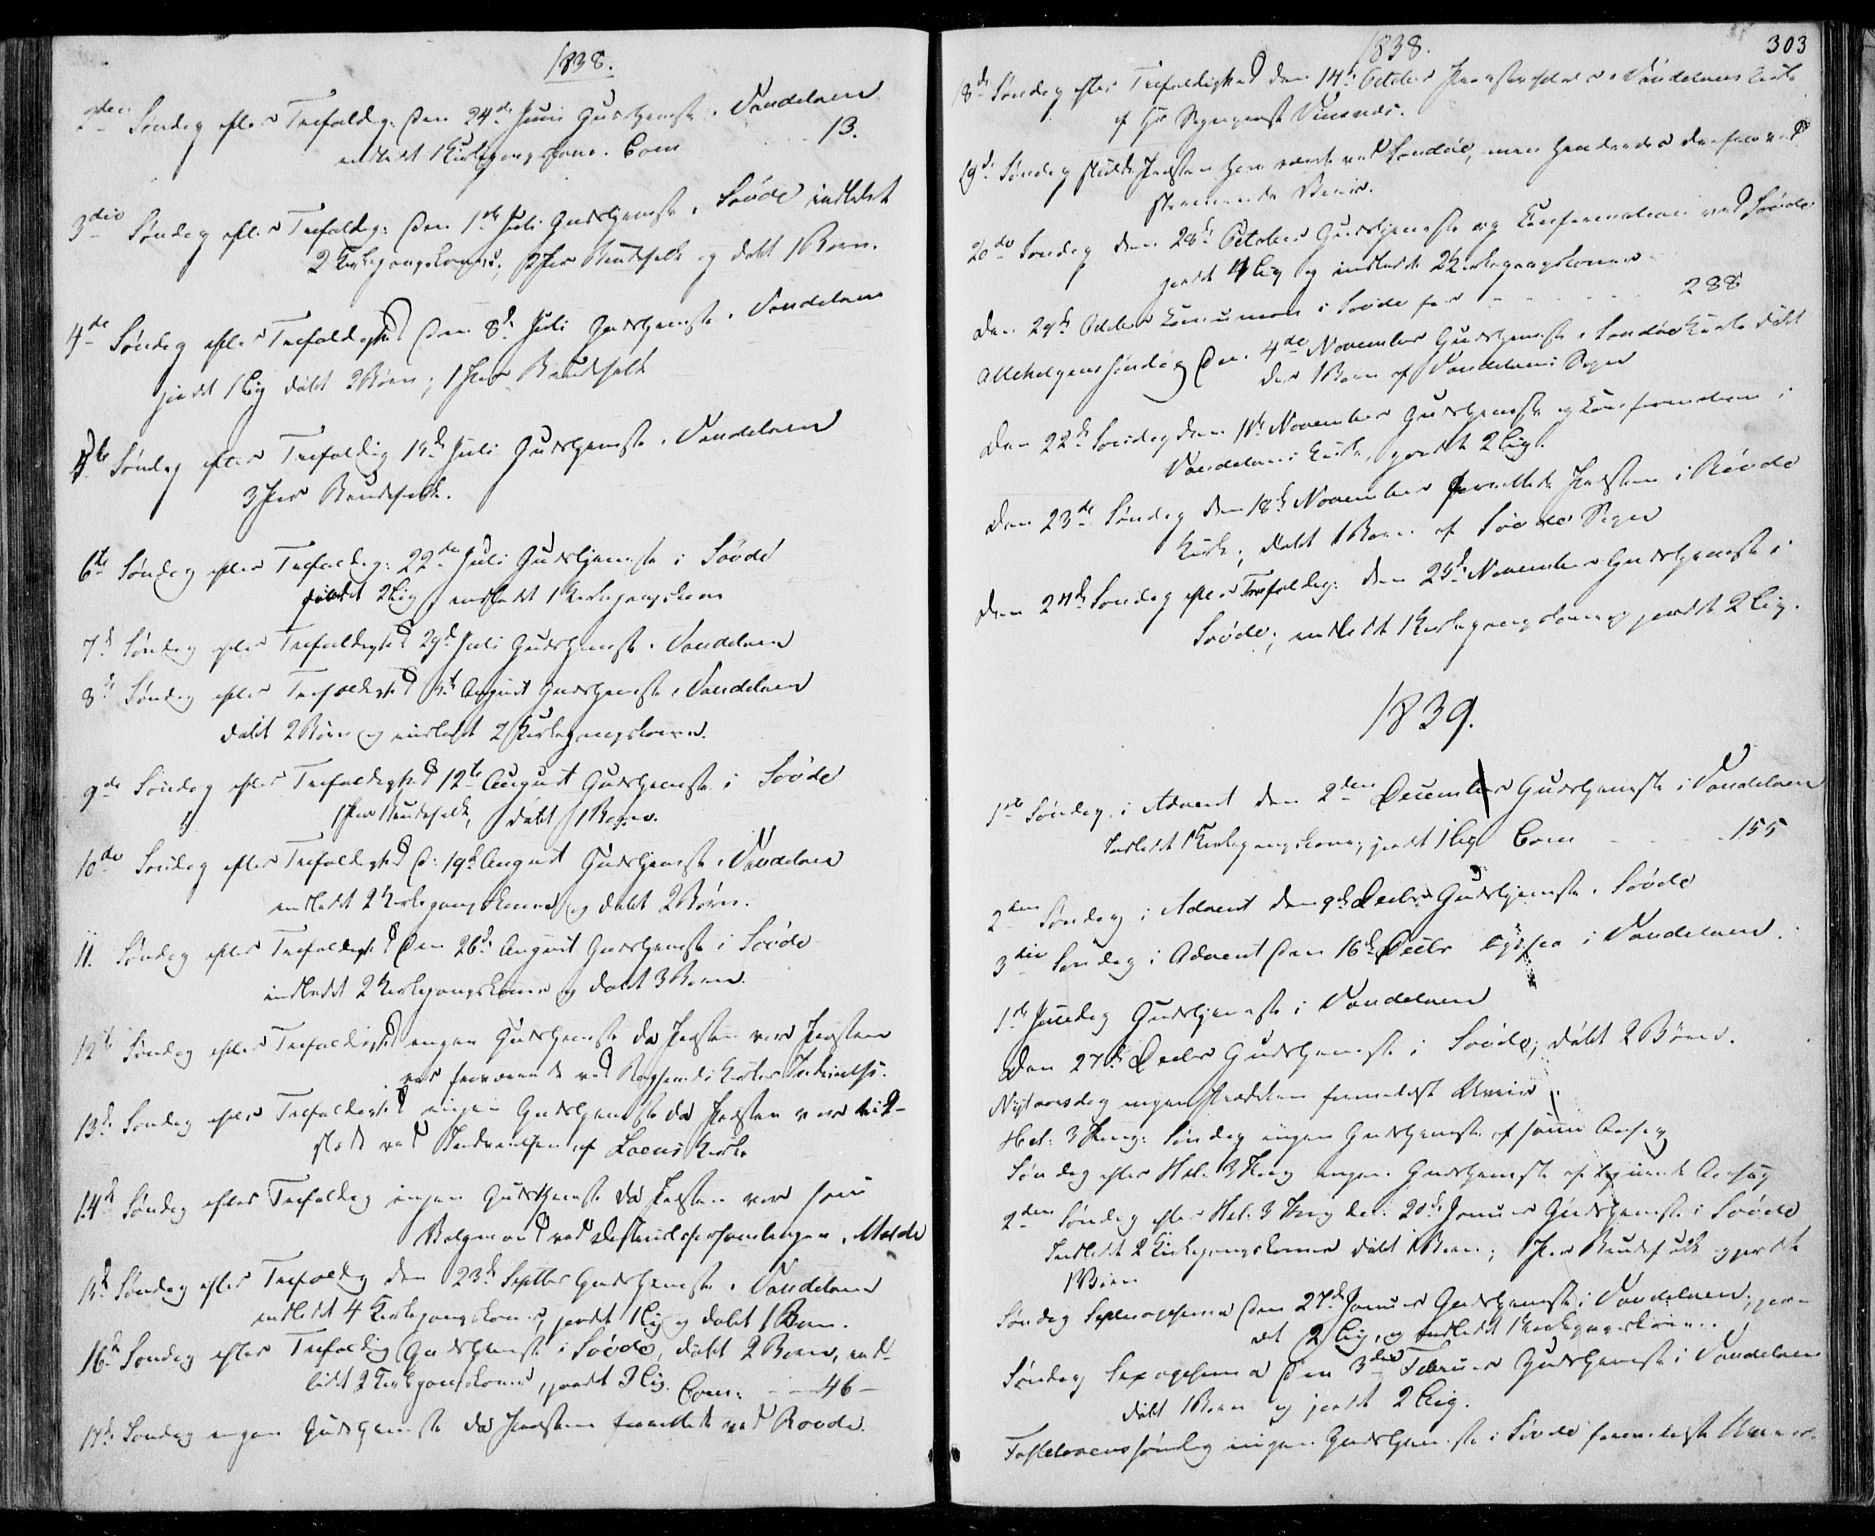 1838.
2den Søndag efter Trefoldig: den 24de Juni Gudstjeneste i Vandelven
indledt 1 Kirkegangskone. Com 13.
3die Søndag efter Trefoldig: den 1ste Juli Gudstjeneste i Søvde indledet
2 Kirkegangskoner, 2 Par Brudefolk og døbt 1 Barn.
4de Søndag efter Trefoldighed den 8de Juli Gudstjeneste i Vandelven
jordet 1 Lig døbt 3 Børn, 1 Par Brudefolk
5te Søndag efter Trefoldig 15de Juli Gudstjeneste i Vandelven
3 Par Brudefolk.
6te Søndag efter Trefoldig: 22de Juli Gudstjeneste i Søvde
jordet 2 Lig, indledet 1 Kirkegangskone
7de Søndag efter Trefoldighed 29de Juli Gudstjeneste i Vandelven
8de Søndag efter Trefoldighed 5te August Gudstjeneste i Vandelven
døbt 2 Børn og indledt 2 Kirkegangskoner.
9de Søndag efter Trefoldighed 12te August Gudstjeneste i Søvde
1 Par Brudefolk, døbt 1 Barn.
10de Søndag efter Trefoldighed d: 19de August Gudstjeneste i Vandelven
indledt 2 Kirkegangskoner og døbt 2 Børn.
11. Søndag efter Trefoldighed den 26de August Gudstjeneste i Søvde
indledet 2 Kirkegangskoner og døbt 3 Børn.
12te Søndag efter Trefoldighed ingen Gudstjeneste da Præsten var Præsten
var fraværende ved Kirkes Indvielse.
13de Søndag efter Trefoldighed ingen Gudstjeneste da Præsten var til-
stede ved Indvielsen af Kirke
14de Søndag efter Trefoldig ingen Gudstjeneste da Præsten var som
Valgmand ved Districtsforsamlingen i Molde
15de Søndag efter Trefoldig den 23de Septbr Gudstjeneste i Vandelven
indledt 4 Kirkegangskoner, jordet 1 Lig og døbt 1 Barn.
16de Søndag efter Trefoldig Gudstjeneste i Søvde, døbt 2 Børn, ind-
ledt 2 Kirkegangskoner, jordet 3 Lig. Com: 46
17de Søndag ingen Gudstjeneste da Præsten forrettede ved Rovde.
1838. 303
18de Søndag efter Trefoldighed den 14de October i Vandelvens Kirke
af Hr Sogneprest
19de Søndag skulde Præsten have været ved Søvde, men hindredes derfra ved
stormende Veir.
20de Søndag den 28de October Gudstjeneste og Confirmation ved Søvde
jordet 4 Lig og indledt 2 Kirkegangskoner
Den 29de October Communion i Søvde for 288
Allehelgenssøndag den 4de November Gudstjeneste i Kirke døbt
der 1 Barn af Vandelvens Sogn
Den 22de Søndag den 11te November Gudstjeneste og Confirmation i
Vandelvens Kirke, jordet 2 Lig.
Den 23de Søndag den 18de November forrettede Præsten i Røvde
Kirke; døbt 1 Barn af Søvde Sogn
Den 24de Søndag efter Trefoldig: den 25de November Gudstjeneste i
Søvde; indledt 1 Kirkegangskone og jordet 2 Lig.
1839.
1ste Søndag i Advent den 2den December Gudstjeneste i Vandelven
Indledt 1 Kirkegangskone, jordet 1 Lig Com 155
2den Søndag i Advent den 9de Decbr Gudstjeneste i Søvde
3die Søndag i Advent den 16de Decbr i Vandelven.
1ste Juledag Gudstjeneste i Vandelven
Den 27de Decbr Gudstjeneste i Søvde; døbt 2 Børn.
Nytaarsdag ingen Prædiken formedelst Uveir
Hel: 3 Kong: Søndag ingen Gudstjeneste af samme Aarsag
Søndag efter Hel: 3 Kong ingen Gudstjeneste af lignende Aarsag
2den Søndag efter Hel: 3 Kong den 20de Januar Gudstjeneste i Søvde
Indledt 2 Kirkegangskoner døbt 1 Barn; 1 Par Brudefolk og jordet
1 Barn
Søndag Septuagesima den 27de Januar Gudstjeneste i Vandelven, jor-
det 2 Lig, og indledt 1 Kirkegangskone.
Søndag Sexagesima den 3die Februar Gudstjeneste i Vandelven
døbt 1 Barn og jordet 2 Lig.
Fastelavenssøndag ingen Gudstjeneste i Søvde formedelst Uveir.